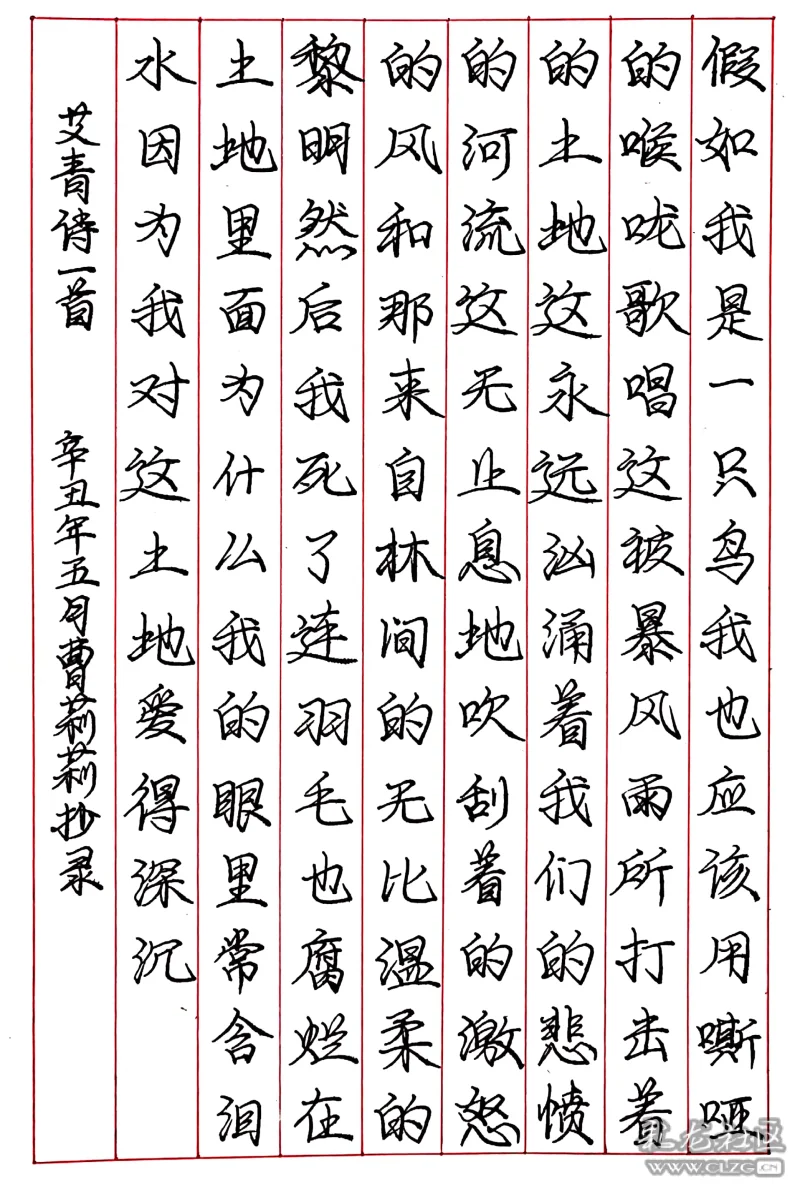 假如我是一只鸟我也应该用嘶哑
的喉咙歌唱这被暴风雨所打击着
的土地这永远汹涌着我们的悲愤
的河流这无止息地吹刮着的激怒
的风和那来自林间的无比温柔的
黎明然后我死了连羽毛也腐烂在
土地里面为什么我的眼里常含泪
水因为我对这土地爱得深沉
艾青诗一首 辛丑年五月曹莉莉抄录
www.CLZG.CN